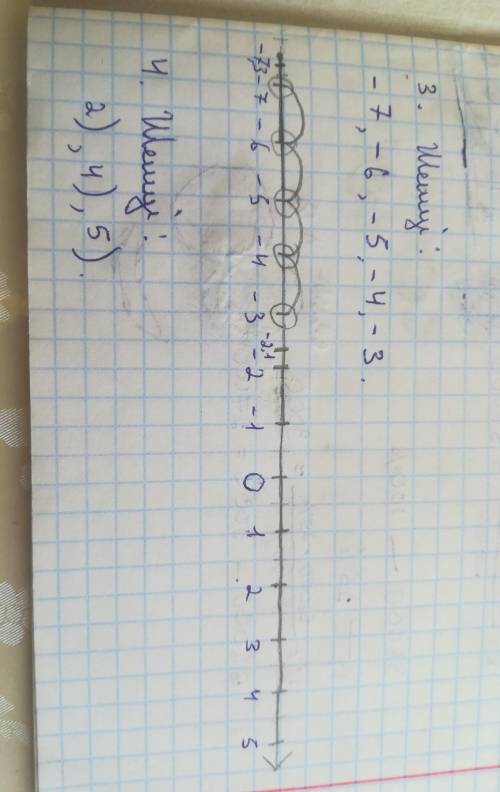 3. Шешуі:
-7, -6, -5, -4, -3.
-7,3 -7 -6 -5 -4 -3 -2,1 -2 -1 0 1 2 3 4 5
4. Шешуі:
2), 4), 5).